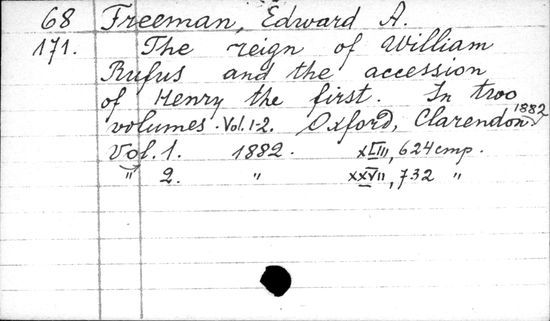 68 Freeman, Edward A.
171. The reign of William
Rufus and the accession
of Henry the first. In two
volumes. Vol. 1-2. Oxford, Clarendon. 1882
Vol. 1. 1882. XLIII, 624 стр.
" 2. " XXVII, 732 "